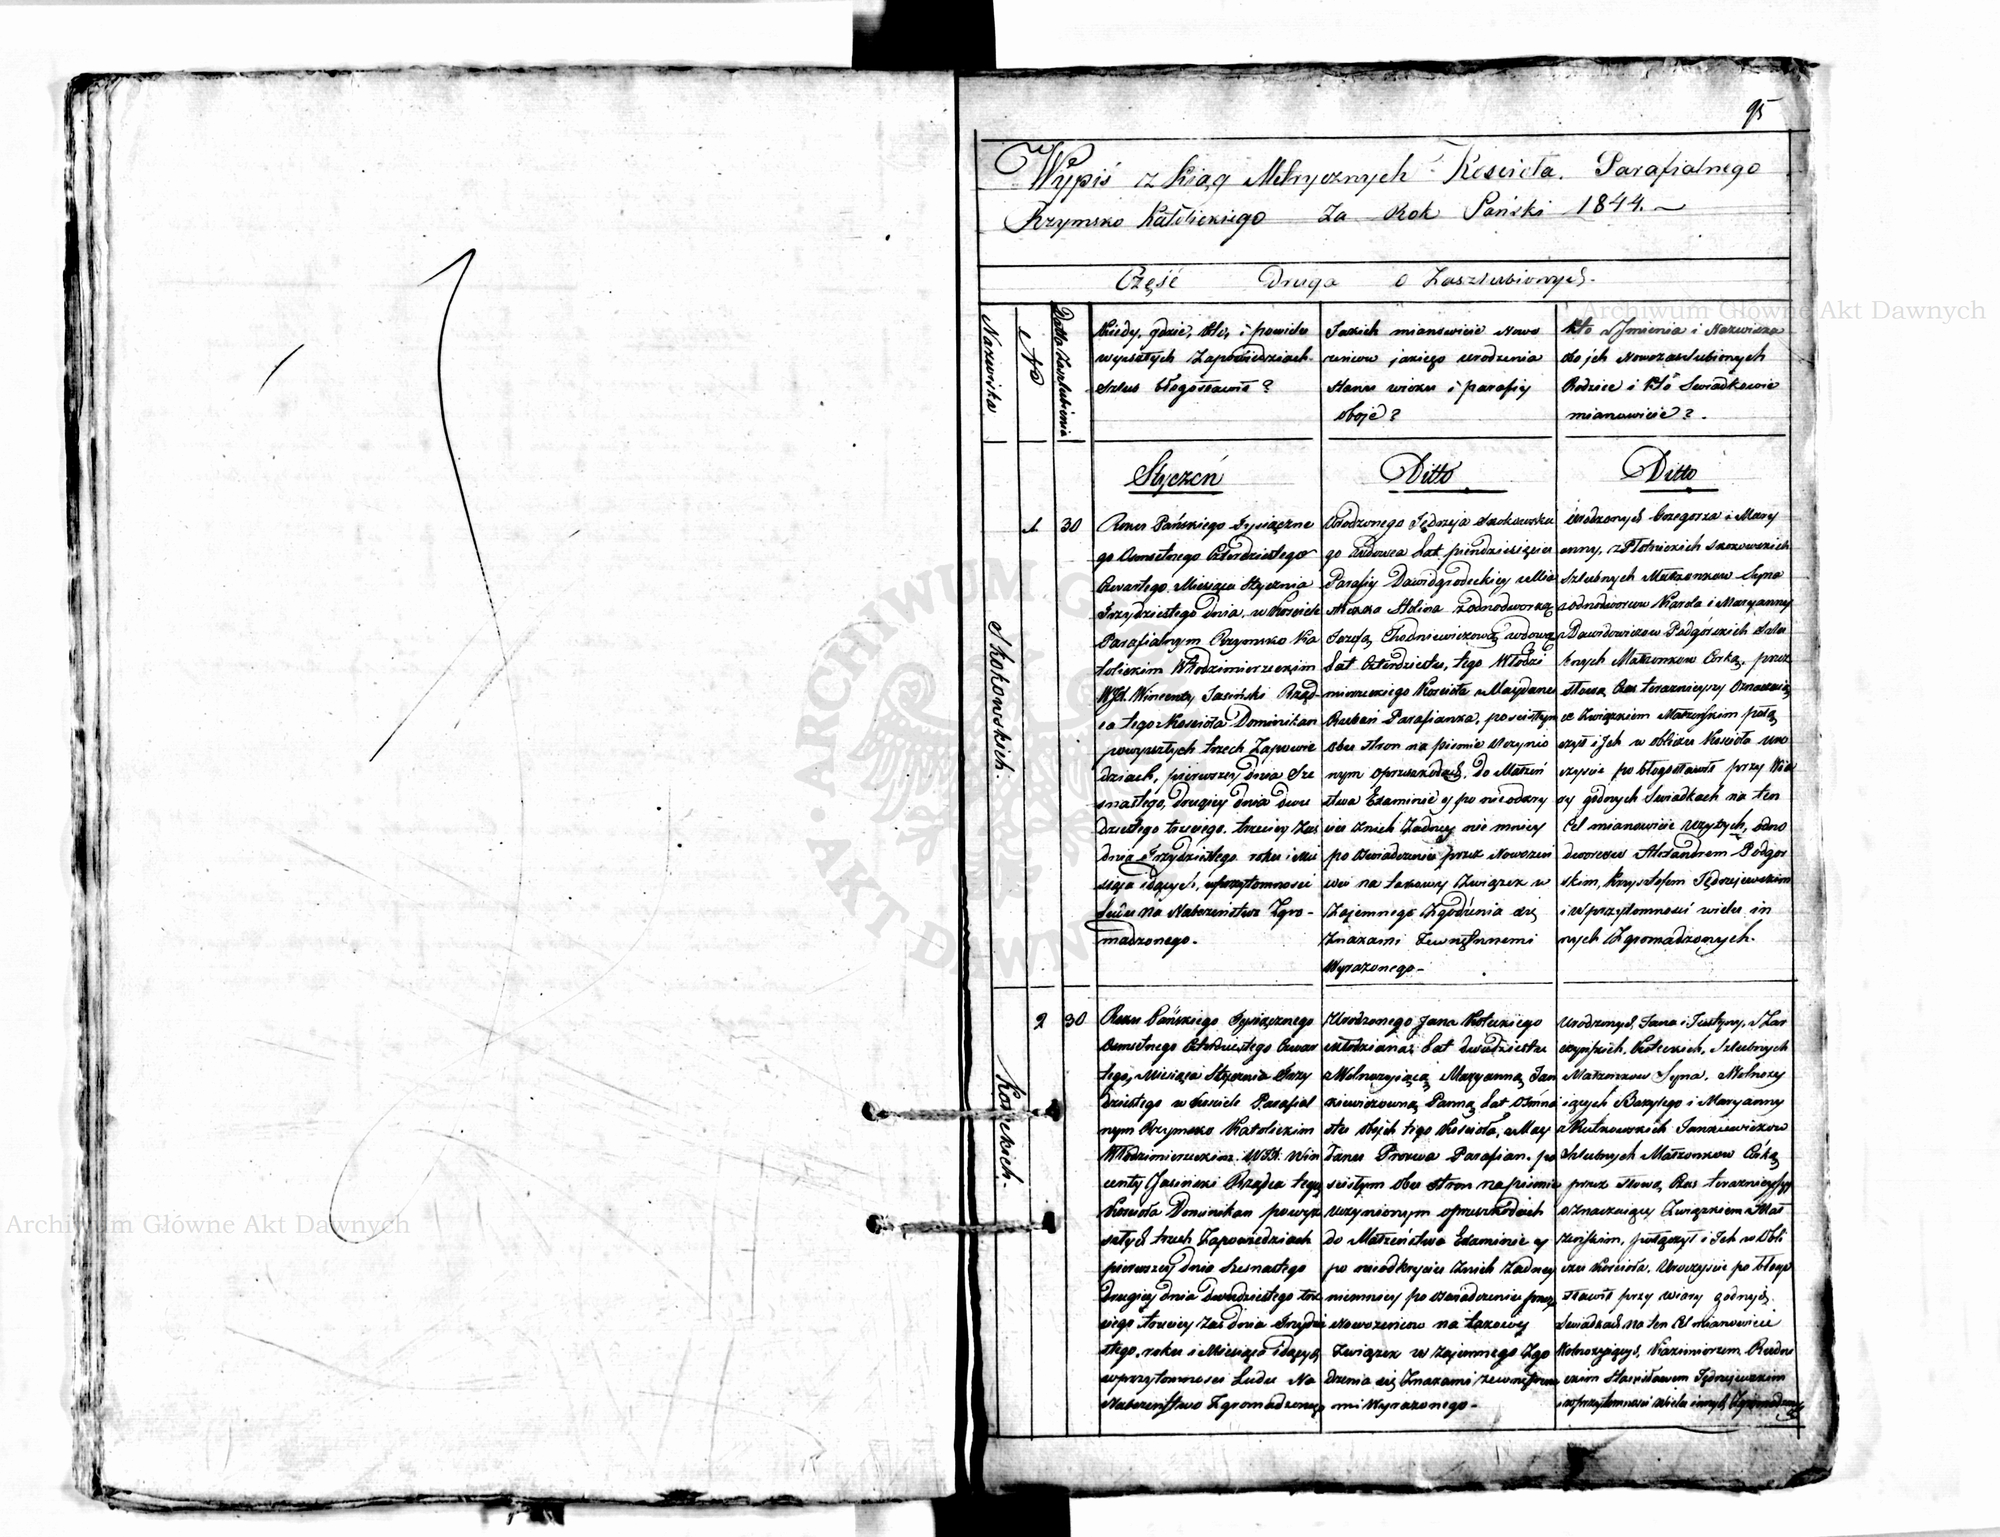 95
Wypis z Ksiąg Metrycznych Kościoła Parafialnego
Rzymsko Katolickiego Za Rok Pański 1844.
Część Druga o Zaszlubionych.
Nazwiska
No
Datta Zaszlubienia
Kiedy, gdzie, kto, i powielu
wyszłych Zapowiedziach
szlub błogosławił?
Jakich mianowicie Nowo
rzencow jakiego urodzenia
stanu wieku i parafiy
oboje?
Kto z Jmienia i Nazwiska
Nowozaszlubionych
Rodzice i kto Swiadkowie
mianowicie?
Styczeń
Ditto
Ditto
Skokowskich.
1
30
Roku Pańskiego Tysiączne
go Osmsetnego Czterdziestego
Czwartego Miesiąca Stycznia
Trzydziestego dnia, w Kosciele
Parafialnym Rzymsko Ka
tolickim Włodzimierzeckim
WJX. Wincenty Jasiński Rząd
ca tego Kościoła Dominikan
powyszłych trzech Zapowie
dziach, pierwszey dnia Sze
snastego, drugiey dnia dwu
dziestego trzeciego, trzeciey zaś
dnia Trzydziestego roku i Mie
siąca idących, wprzytomnosci
Ludu na Nabożeństwo Zgro-
madzonego.
Urodzonego Jędrzeja Skokowskie
go Wdowca Lat piendziesięciu
Parafiy Dawidgrodeckiey z Mia
steczka Stolina z odnodworką
Jozefą Chodniewiczową wdową
Lat Czterdziestu, tego Włodzi
mierzeckiego Kościoła z Maydanu
Parafianką, poscisłym
obu stron na pismie Uczynio
nym oprzeszkodach, do Małżeń
stwa Examinie y po nieodkry
ciu Znich Żadney nie mniey
po oswiadczeniu przez Nowożeń
cow na takowy Związek w
Zajemnego Zgodzenia się
Znakami Zewnętrznemi
Wyrażonego-
Urodzonych Grzegorza i Mary
anny, z Płotnickich Skokowskich
Szlubnych Małżonkow Syna
z odnodworcow Karola i Maryanny
z Dawidowiczow Podgórskich Szlu
bnych Małżonkow Corką. przez
słowa Czas teraznieyszy Oznaczają
ce Związkiem Małżeńskim połą
czył i Jch w obliczu Kościoła uro
czyscie pobłogosławił przy Wia
ry godnych Swiadkach na ten
Cel mianowicie Użytych, odno
dworcu Alexandrem Podgor
skim, Krysztofem Jędrzejewskim
i Wprzytomności wielu in
nych Zgromadzonych.
Koteckich.
2
30
Roku Pańskiego Tysiącznego
Osmsetnego Czterdziestego Czwar
tego, Miesiąca Stycznia Trzy
dziestego w Kosciele Parafial
nym Rzymsko Katolickim
Włodzimierzeckim. WJX. Win
centy Jasiński Rządca tego
Kościoła Dominikan powysz
szłych trzech Zapowiedziach
pierwszey dnia Szesnastego
drugiey dnia dwudziestego trze
ciego trzeciey Zaś dnia Trzydzie
stego, roku i Miesiąca idących
wprzytomnosci Ludu Na
Nabożeństwo Zgromadzonego
Urodzonego Jana Koteckiego
młodziana Lat dwudziestu
z Wolnożyjącą Maryanną Jan
kiewiczowną Panną Lat Osmna
stu obojh tego Kościoła, z May
danu Parafian. po
scisłym obu stron na pismie
Uczynionym oprzeszkodach
do Małżeństwa Examinie y
po nieodkryciu Znich Żadney
niemniey po oswiadczeniu przez
Nowożencow na takowy
Związek w Zajemnego Zgo
dzenia się Znakami Zewnętrzne
mi Wyrażonego-
Urodzonych Jana i Justyny,
Koteckich, Szlubnych
Małżonkow Syna, Wolnoży
jących Bazylego i Maryanny
z Rutkowskich Jankiewiczow
Szlubnych Małżonkow Córką
przez słowa, Czas teraznieyszy
oznaczający Związkiem Mał
żeńskim, połączył i Jch w Obli
czu Kościoła, Uroczyscie pobłogo
sławił przy wiary godnych
Swiadkach na ten Cel mianowicie
Wolnożyjących, Kazimierzem
Stanisławem Jędrzejewskim
i wprzytomnosci wielu innych Zgromadzonych
Archiwum Główne Akt Dawnych
Archiwum Główne Akt Dawnych
ARCHIWUM GŁÓWNE AKT DAWNYCH